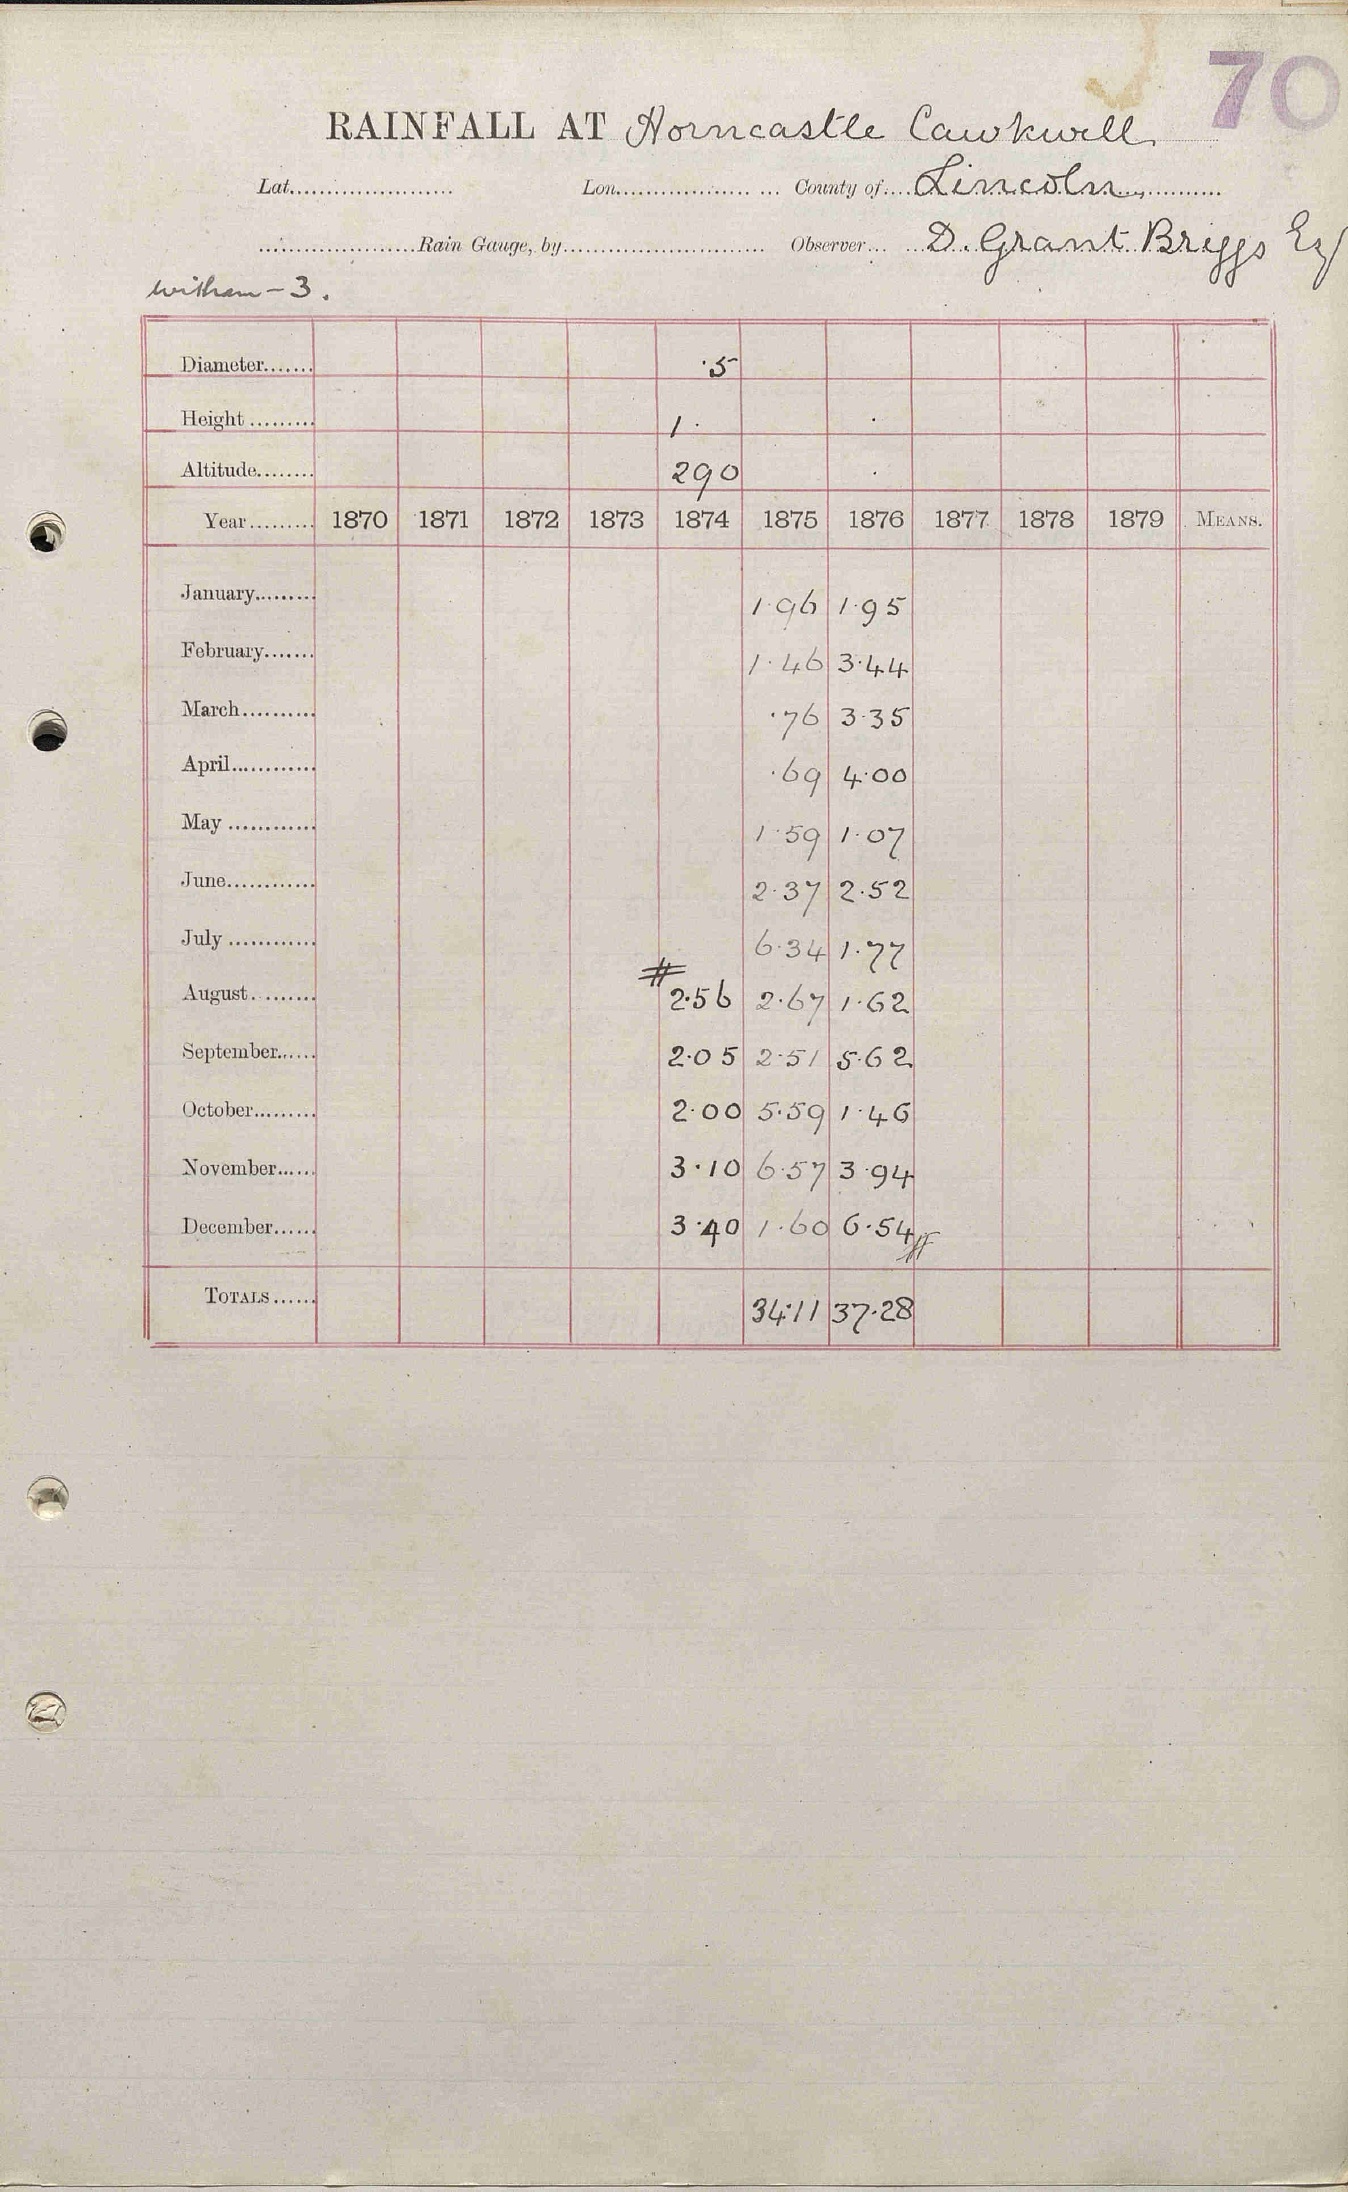 70
RAINFALL AT Horncastle Cawkwell
Lat. Lon. County of Lincoln
Rain Gauge, by Observer D. Grant Briggs Esq
Witham - 3.
Diameter ·5
Height 1·
Altitude 290
Year 1870 1871 1872 1873 1874 1875 1876 1877 1878 1879 MEANS.
January 1·96 1·95
February 1·46 3·44
March ·76 3·35
April ·69 4·00
May 1·59 1·07
June 2·37 2·52
July 6·34 1·77
August # 2·56 2·67 1·62
September 2·05 2·51 5·62
October 2·00 5·59 1·46
November 3·10 6·57 3·94
December 3·40 1·60 6·54 #
TOTALS 34·11 37·28